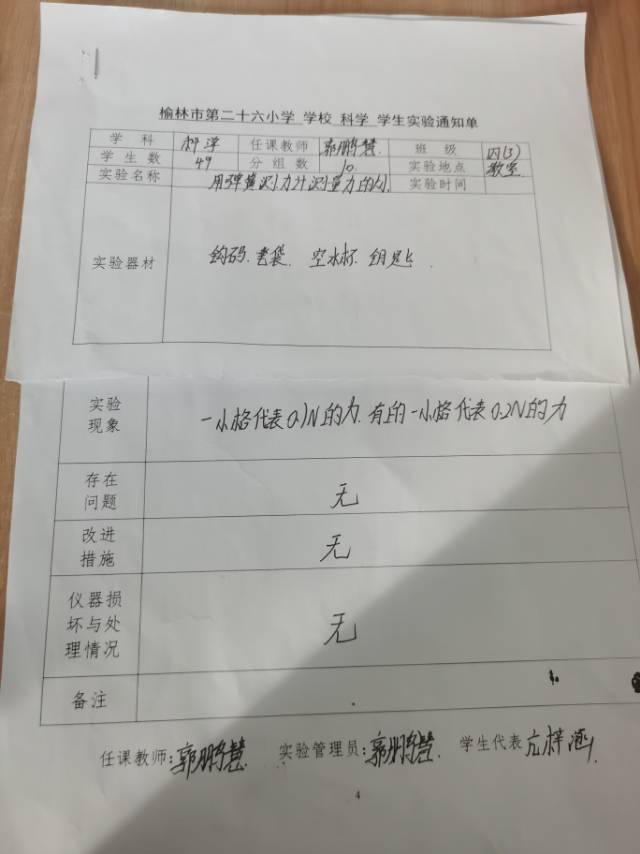 榆林市第二十六小学 学校 科学 学生实验通知单
学科 科学 任课教师 郭鹏慧 班级 四(3)
学生数 49 分组数 10 实验地点 教室
实验名称 用弹簧测力计测量力的 实验时间
实验器材 钩码. 套袋. 空水杯. 钥匙.
实验
现象
一小格代表0.1N的力. 有的一小格代表0.2N的力
存在
问题
无
改进
措施
无
仪器损
坏与处
理情况
无
备注
任课教师:郭鹏慧 实验管理员:郭鹏慧 学生代表 亢梓涵
4